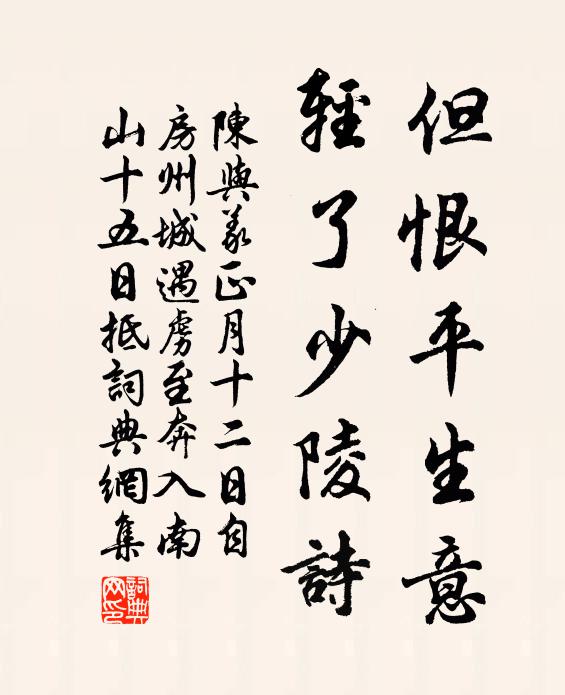 但恨平生意
輕了少陵詩
陳與義正月十二日自
房州城遇虜至奔入南
山十五日抵詞典網集
詞典网印